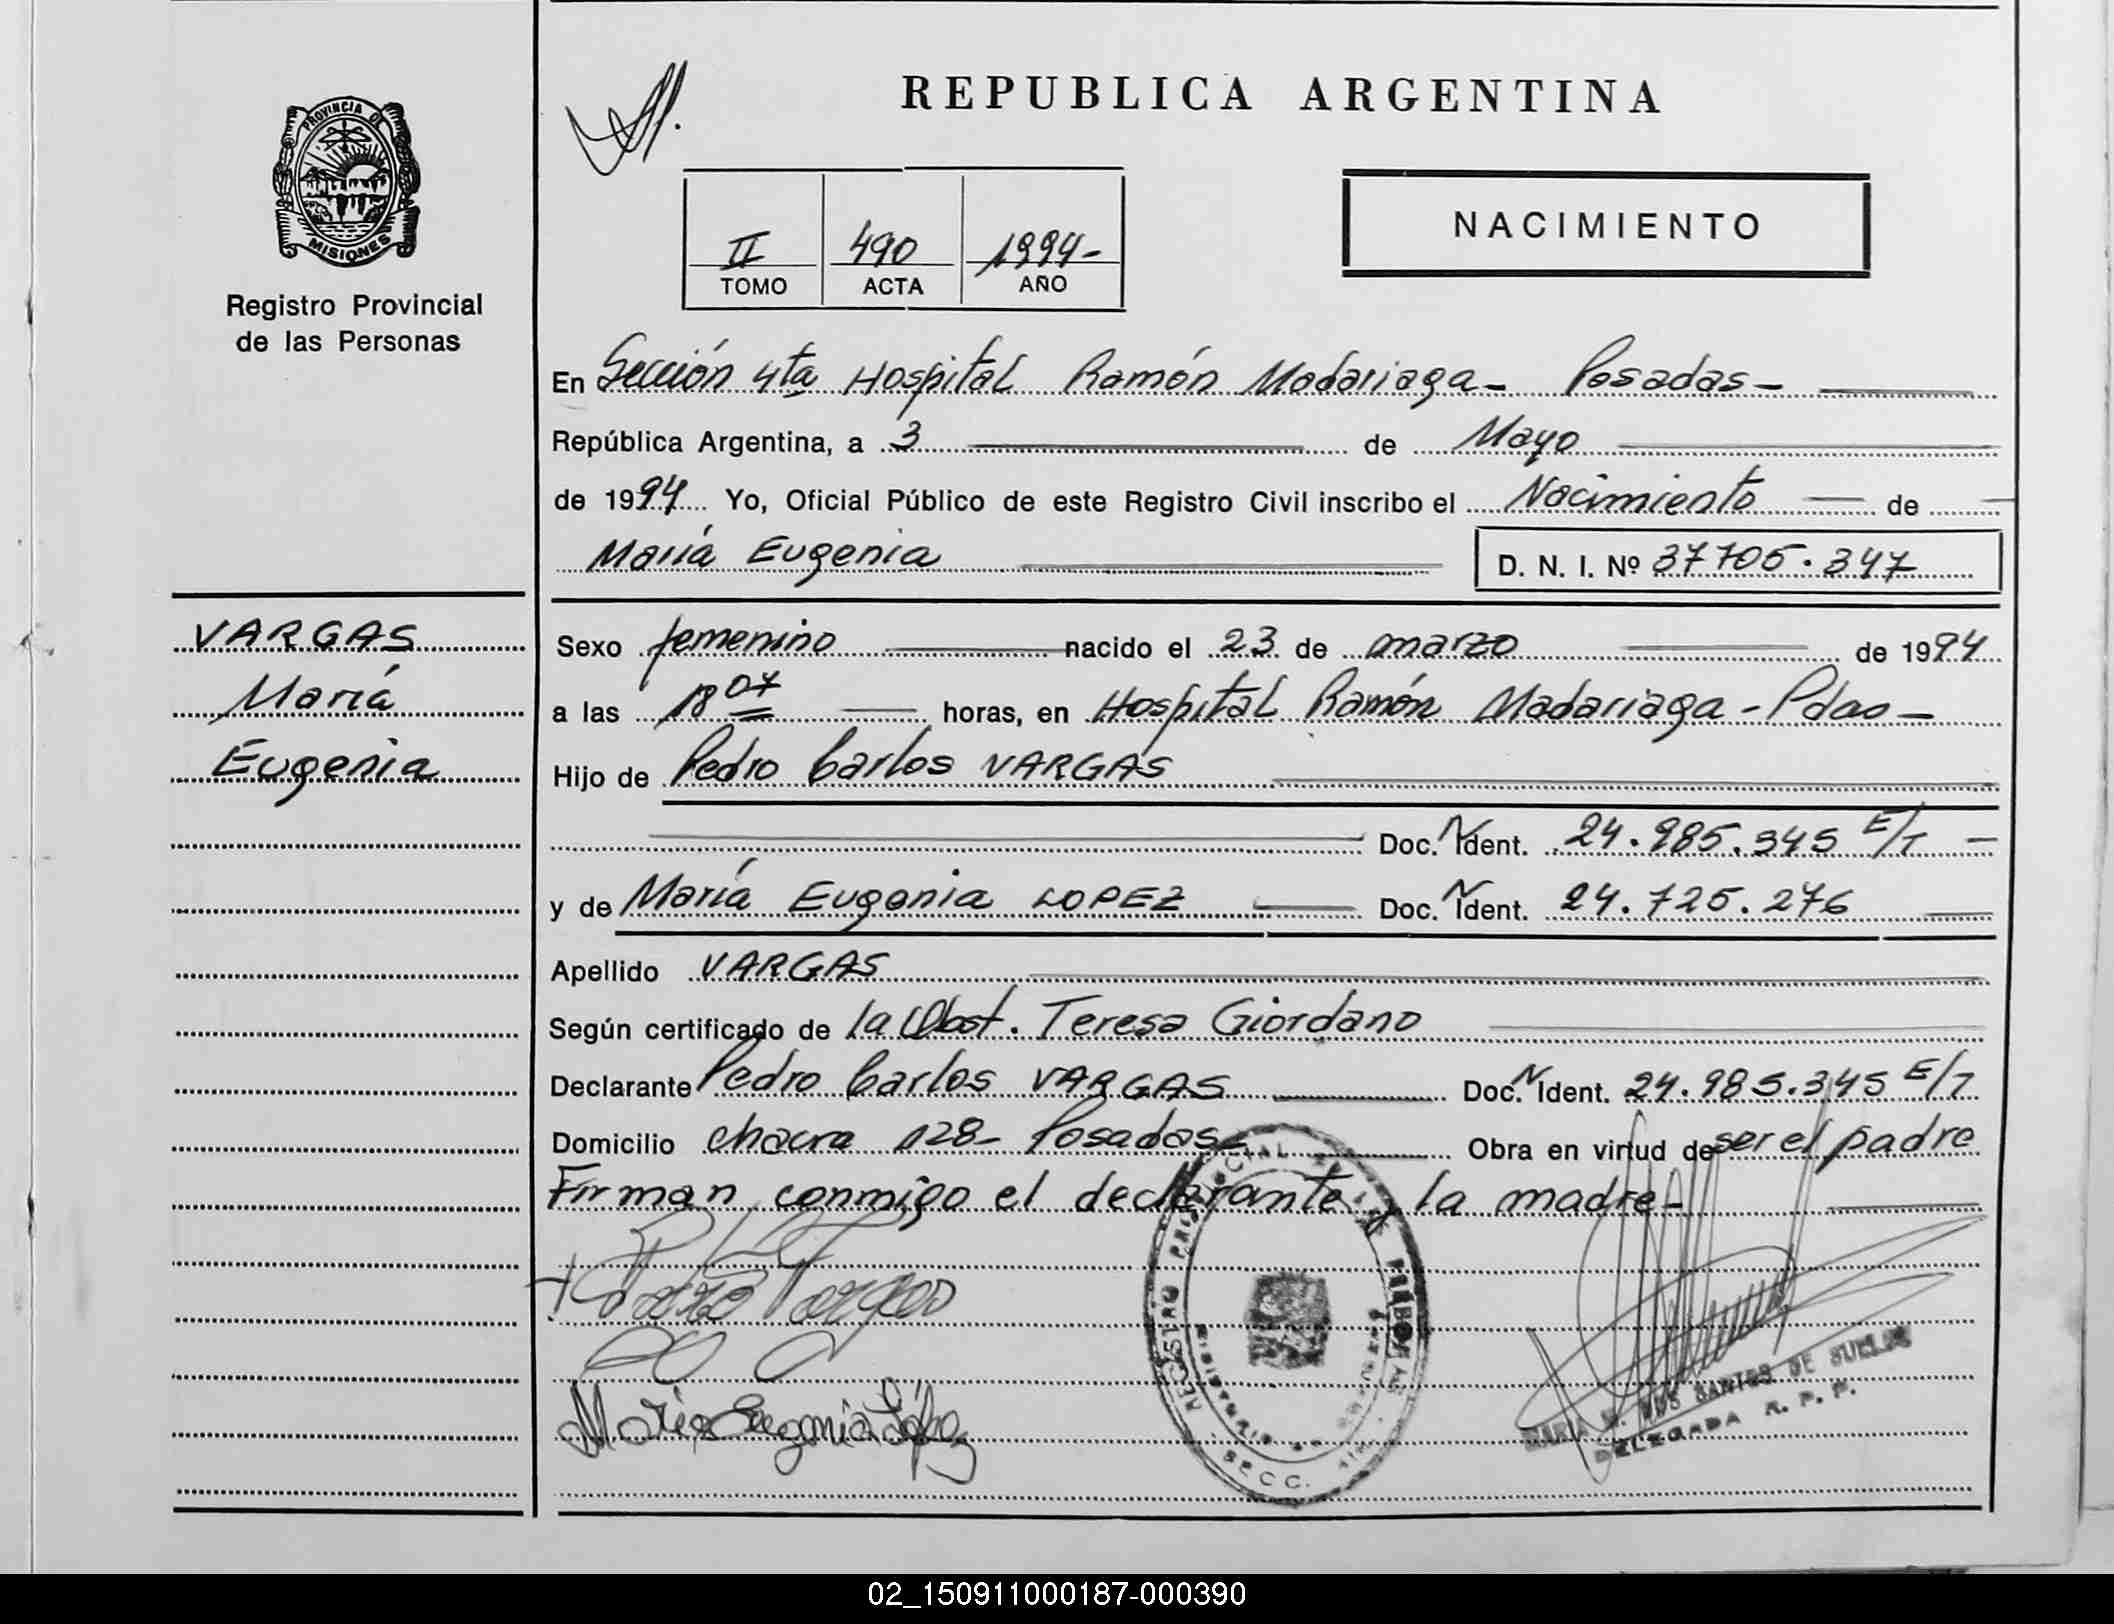 REPUBLICA ARGENTINA
PROVINCIA DE
MISIONES
Registro Provincial
de las Personas
II 490 1994-
TOMO ACTA AÑO
NACIMIENTO
En Sección 4ta Hospital Ramón Madariaga- Posadas-
República Argentina, a 3 de Mayo
de 1994 Yo, Oficial Público de este Registro Civil inscribo el Nacimiento de
María Eugenia D. N. I. Nº 37705.347
VARGAS
María
Eugenia
Sexo femenino nacido el 23 de marzo de 1994
a las 18 07 horas, en Hospital Ramón Madariaga - Pdas -
Hijo de Pedro Carlos VARGAS
Doc. N Ident. 24.985.345 E/T -
y de María Eugenia LOPEZ Doc. N Ident. 24.725.276
Apellido VARGAS
Según certificado de la Obst. Teresa Giordano
Declarante Pedro Carlos VARGAS Doc. N Ident. 24.985.345 E/T
Domicilio chacra 128- Posadas- Obra en virtud de ser el padre
Firman conmigo el declarante y la madre-
María Eugenia López
REGISTRO PROVINCIAL DE LAS PERSONAS
SECC.
MARIA DOS SANTOS DE
DELEGADA R. P. P.
02_150911000187-000390